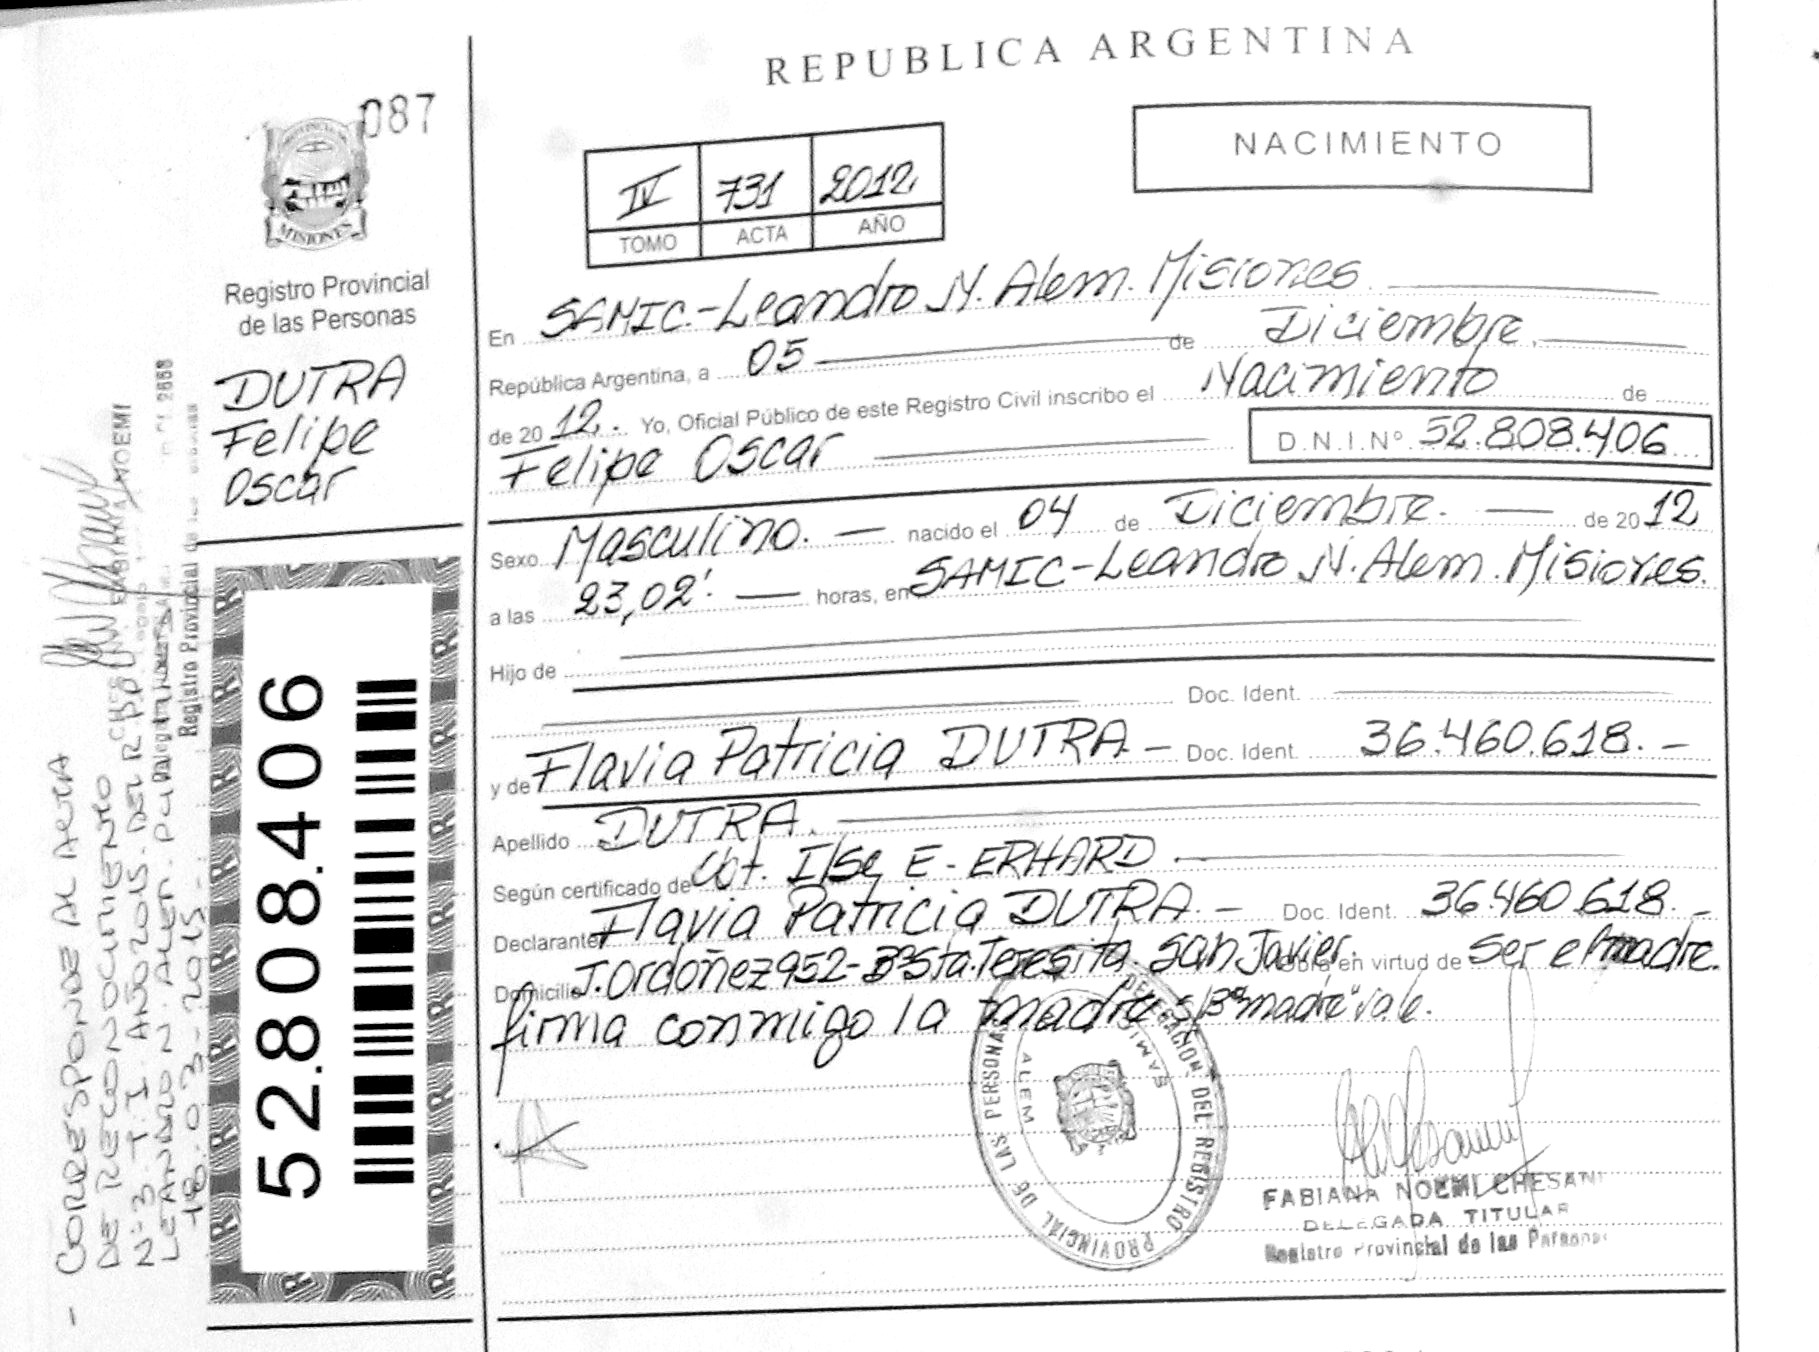 REPUBLICA ARGENTINA
087
NACIMIENTO
IV 731 2012
TOMO ACTA AÑO
MISIONES
Registro Provincial
de las Personas
DUTRA
Felipe
Oscar
En SAMIC.-Leandro N. Alem. Misiones
República Argentina, a 05 de Diciembre.
de 20 12. Yo, Oficial Público de este Registro Civil inscribo el Nacimiento de
Felipe Oscar D.N.I.Nº 52.808.406
Sexo Masculino. nacido el 04 de Diciembre. de 20 12
a las 23,02' horas, en SAMIC-Leandro N. Alem. Misiones.
Hijo de
Doc. Ident.
y de Flavia Patricia DUTRA.- Doc. Ident. 36.460.618.-
Apellido DUTRA.
Según certificado de Obt. Ilse E. ERHARD
Declarante Flavia Patricia DUTRA.- Doc. Ident. 36.460.618.-
Domicilio J.Ordoñez 952-Bº Sta.Teresita. San Javier. Obra en virtud de ser madre.
firma conmigo la madre s/Bº "madre" vale.
DELEGACION DEL REGISTRO PROVINCIAL DE LAS PERSONAS
SAMIC
ALEM
FABIANA NOEMI CHESANI
DELEGADA TITULAR
Registro Provincial de las Personas
52.808.406
- CORRESPONDE AL ACTA
DE RECONOCIMIENTO
Nº 3. T. I. AÑO 2015. DEL R.P.P.
LEANDRO N. ALEM.
18-03-2015-
Registro Provincial de las